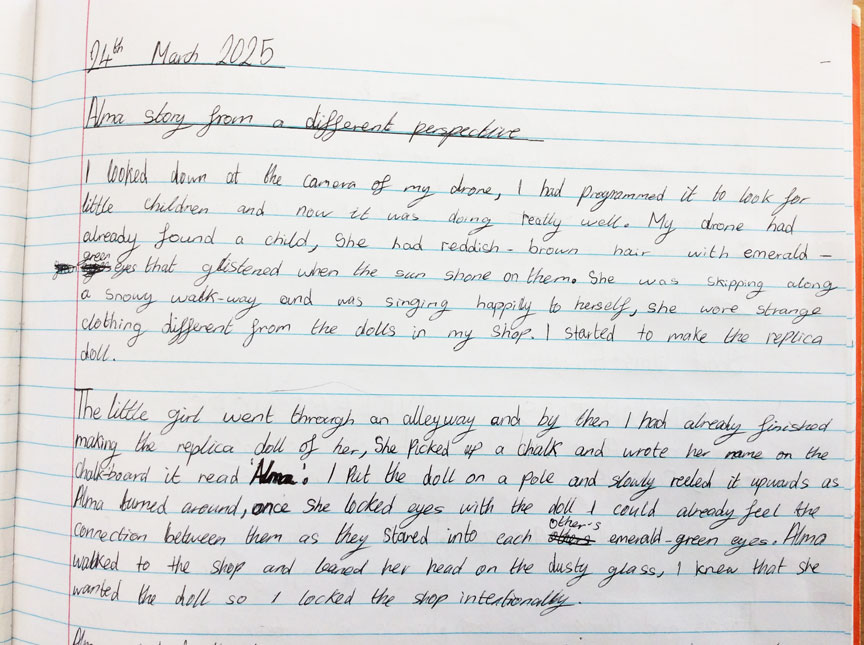 24th March 2025
Alma story from a different perspective
I looked down at the camera of my drone, I had programmed it to look for
little children and now it was doing really well. My drone had
already found a child, She had reddish - brown hair with emerald -
green eyes that glistened when the sun shone on them. She was skipping along
a snowy walk-way and was singing happily to herself, she wore strange
clothing different from the dolls in my shop. I started to make the replica
doll.
The little girl went through an alleyway and by then I had already finished
making the replica doll of her, She picked up a chalk and wrote her name on the
chalk-board it read 'Alma'. I Put the doll on a pole and slowly reeled it upwards as
Alma turned around, once she locked eyes with the doll I could already feel the
connection between them as they stared into each other's emerald-green eyes. Alma
walked to the shop and leaned her head on the dusty glass, I knew that she
wanted the doll so I locked the shop intentionally.
Alma